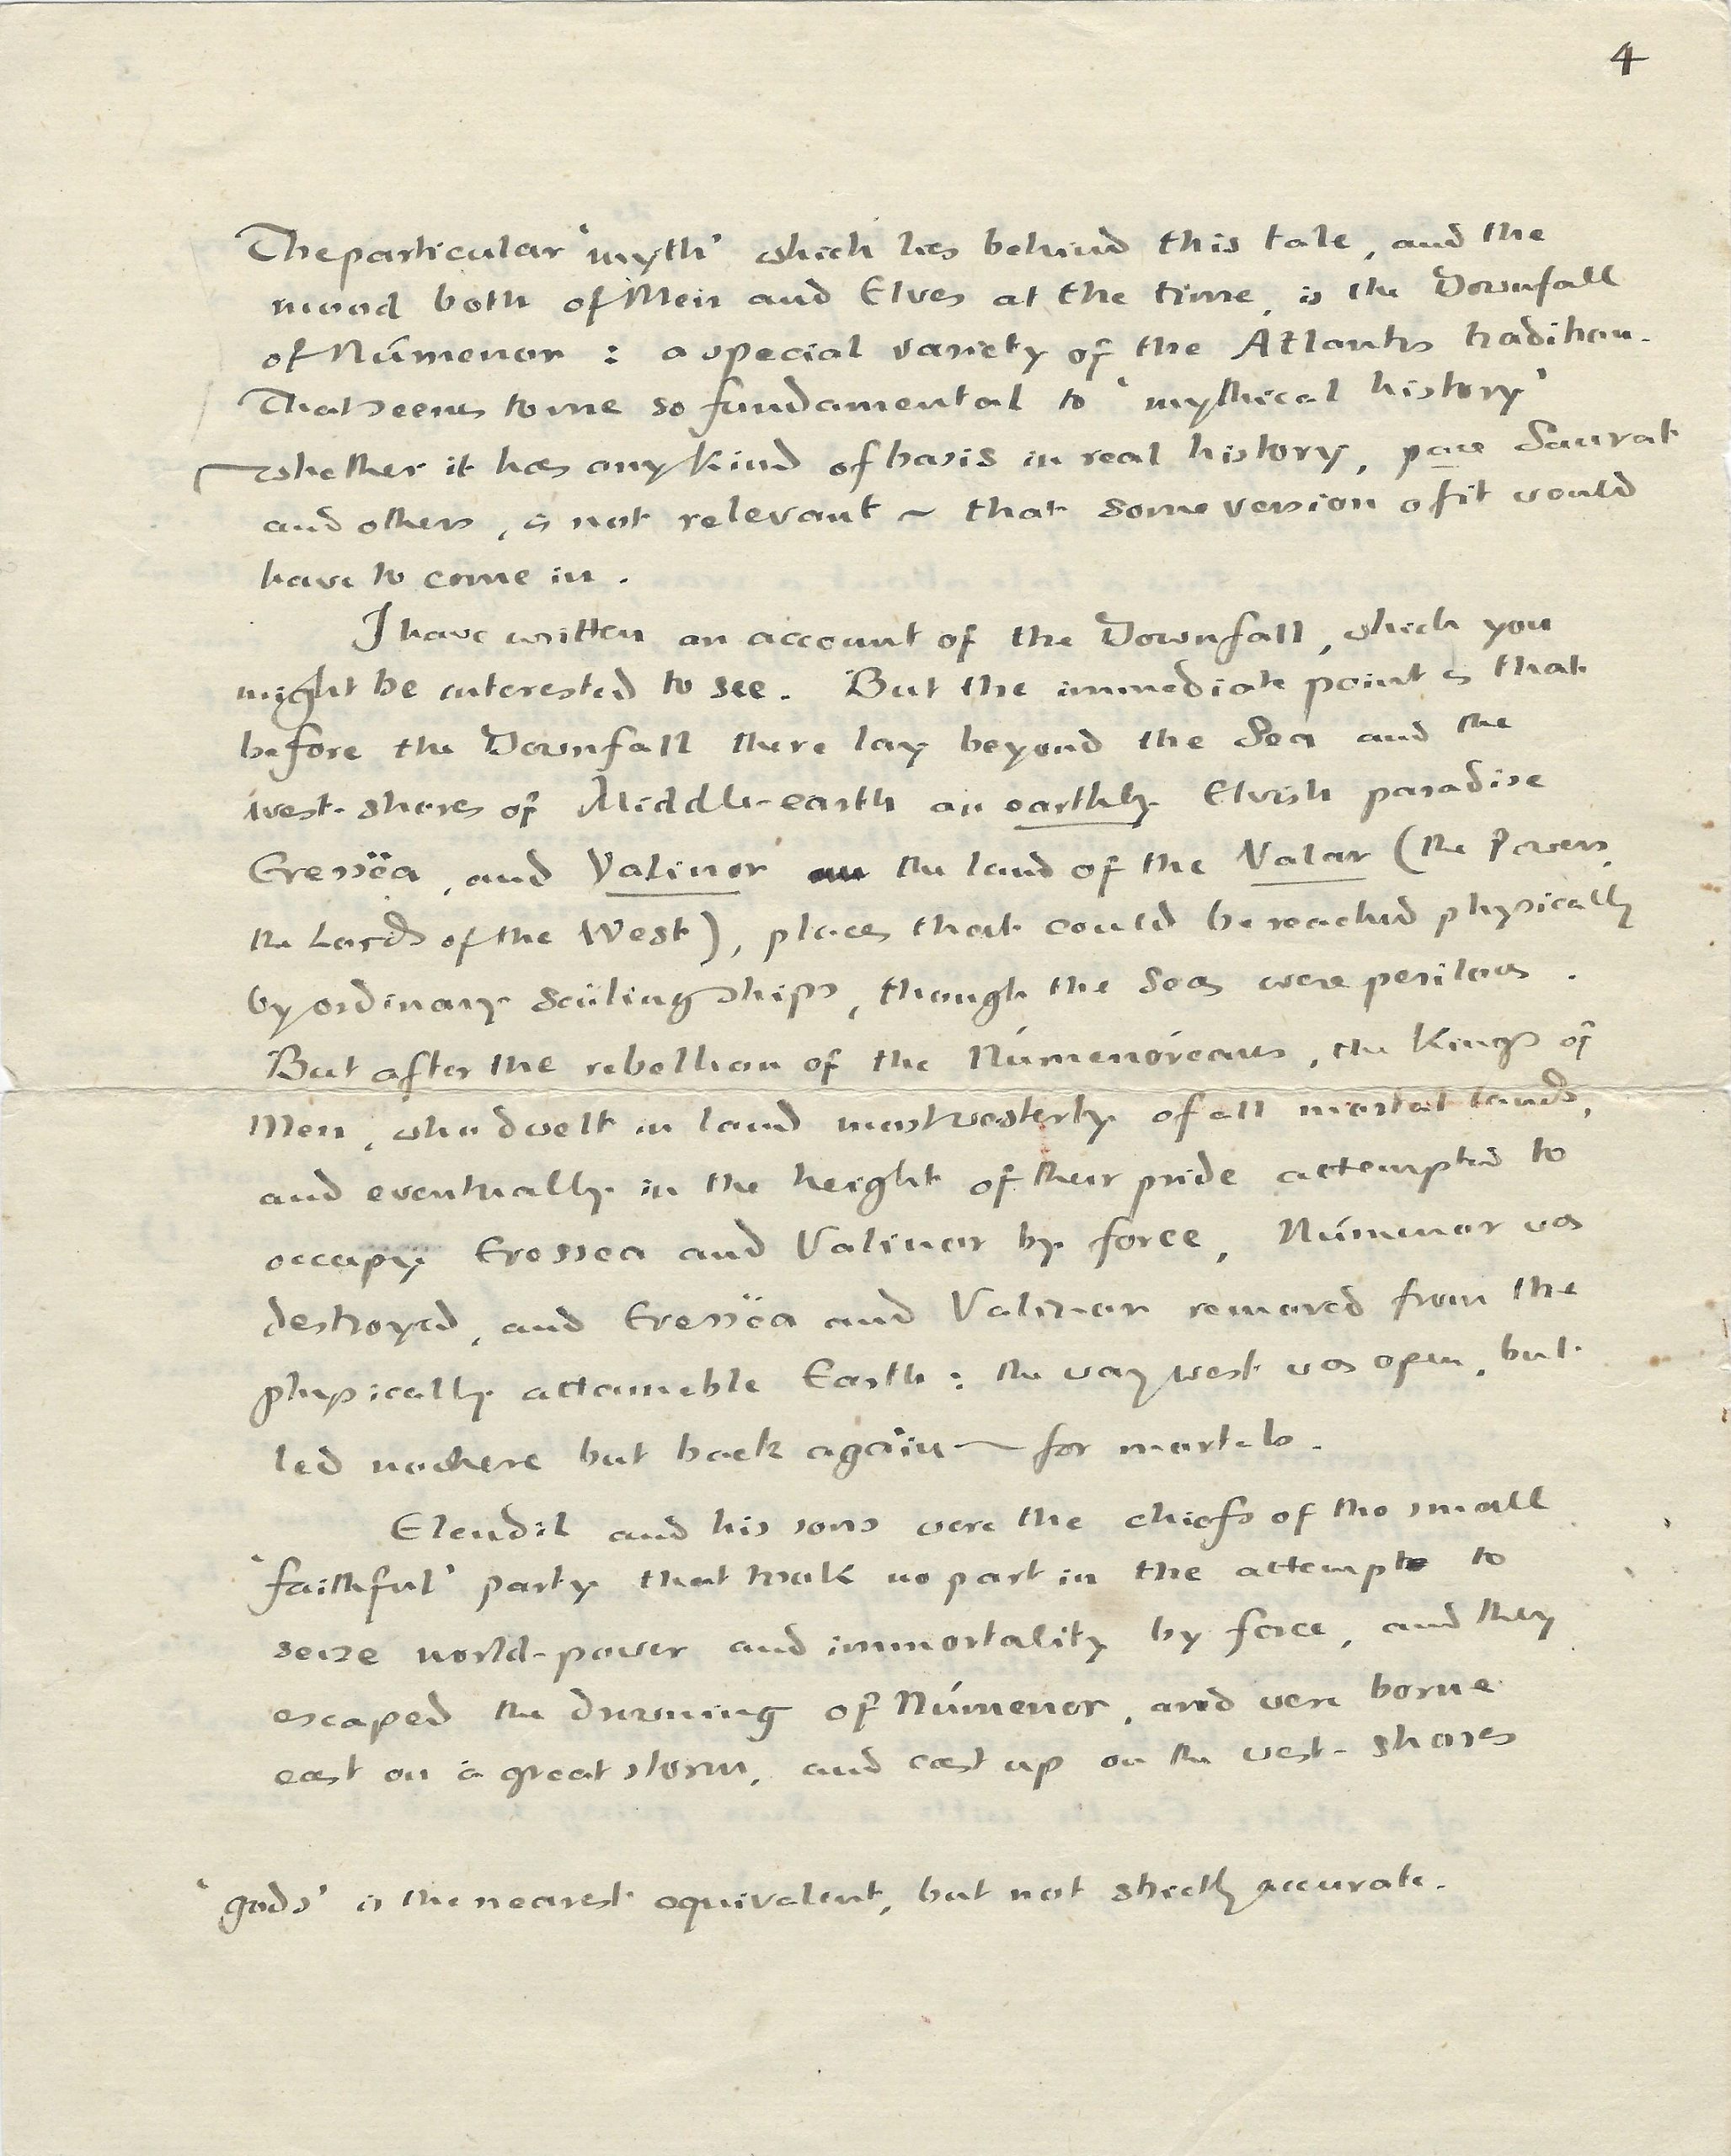 4
The particular 'myth' which lies behind this tale, and the
mood both of Men and Elves at the time, is the Downfall
of Númenor : a special variety of the Atlantis tradition.
That seems to me so fundamental to 'mythical history'
~ whether it has any kind of basis in real history, pace Saurat
and others, is not relevant ~ that some version of it would
have to come in.
I have written an account of the Downfall, which you
might be interested to see. But the immediate point is that
before the Downfall there lay beyond the Sea and the
west-shores of Middle-earth an earthly Elvish paradise
Eressëa, and Valinor the land of the Valar (the Powers,
the Lords of the West), places that could be reached physically
by ordinary sailing ships, though the Seas were perilous.
But after the rebellion of the Númenóreans, the Kings of
Men, who dwelt in land most westerly of all mortal lands,
and eventually in the height of their pride attempted to
occupy Eressea and Valinor by force, Númenor was
destroyed, and Eressëa and Valinor removed from the
physically attainable Earth : the way west was open, but
led nowhere but back again ~ for mortals.
Elendil and his sons were the chiefs of the small
'faithful' party that took no part in the attempt to
seize world-power and immortality by force, and they
escaped the drowning of Númenor, and were borne
east on a great storm, and cast up on the west-shores
'gods' is the nearest equivalent, but not strictly accurate.